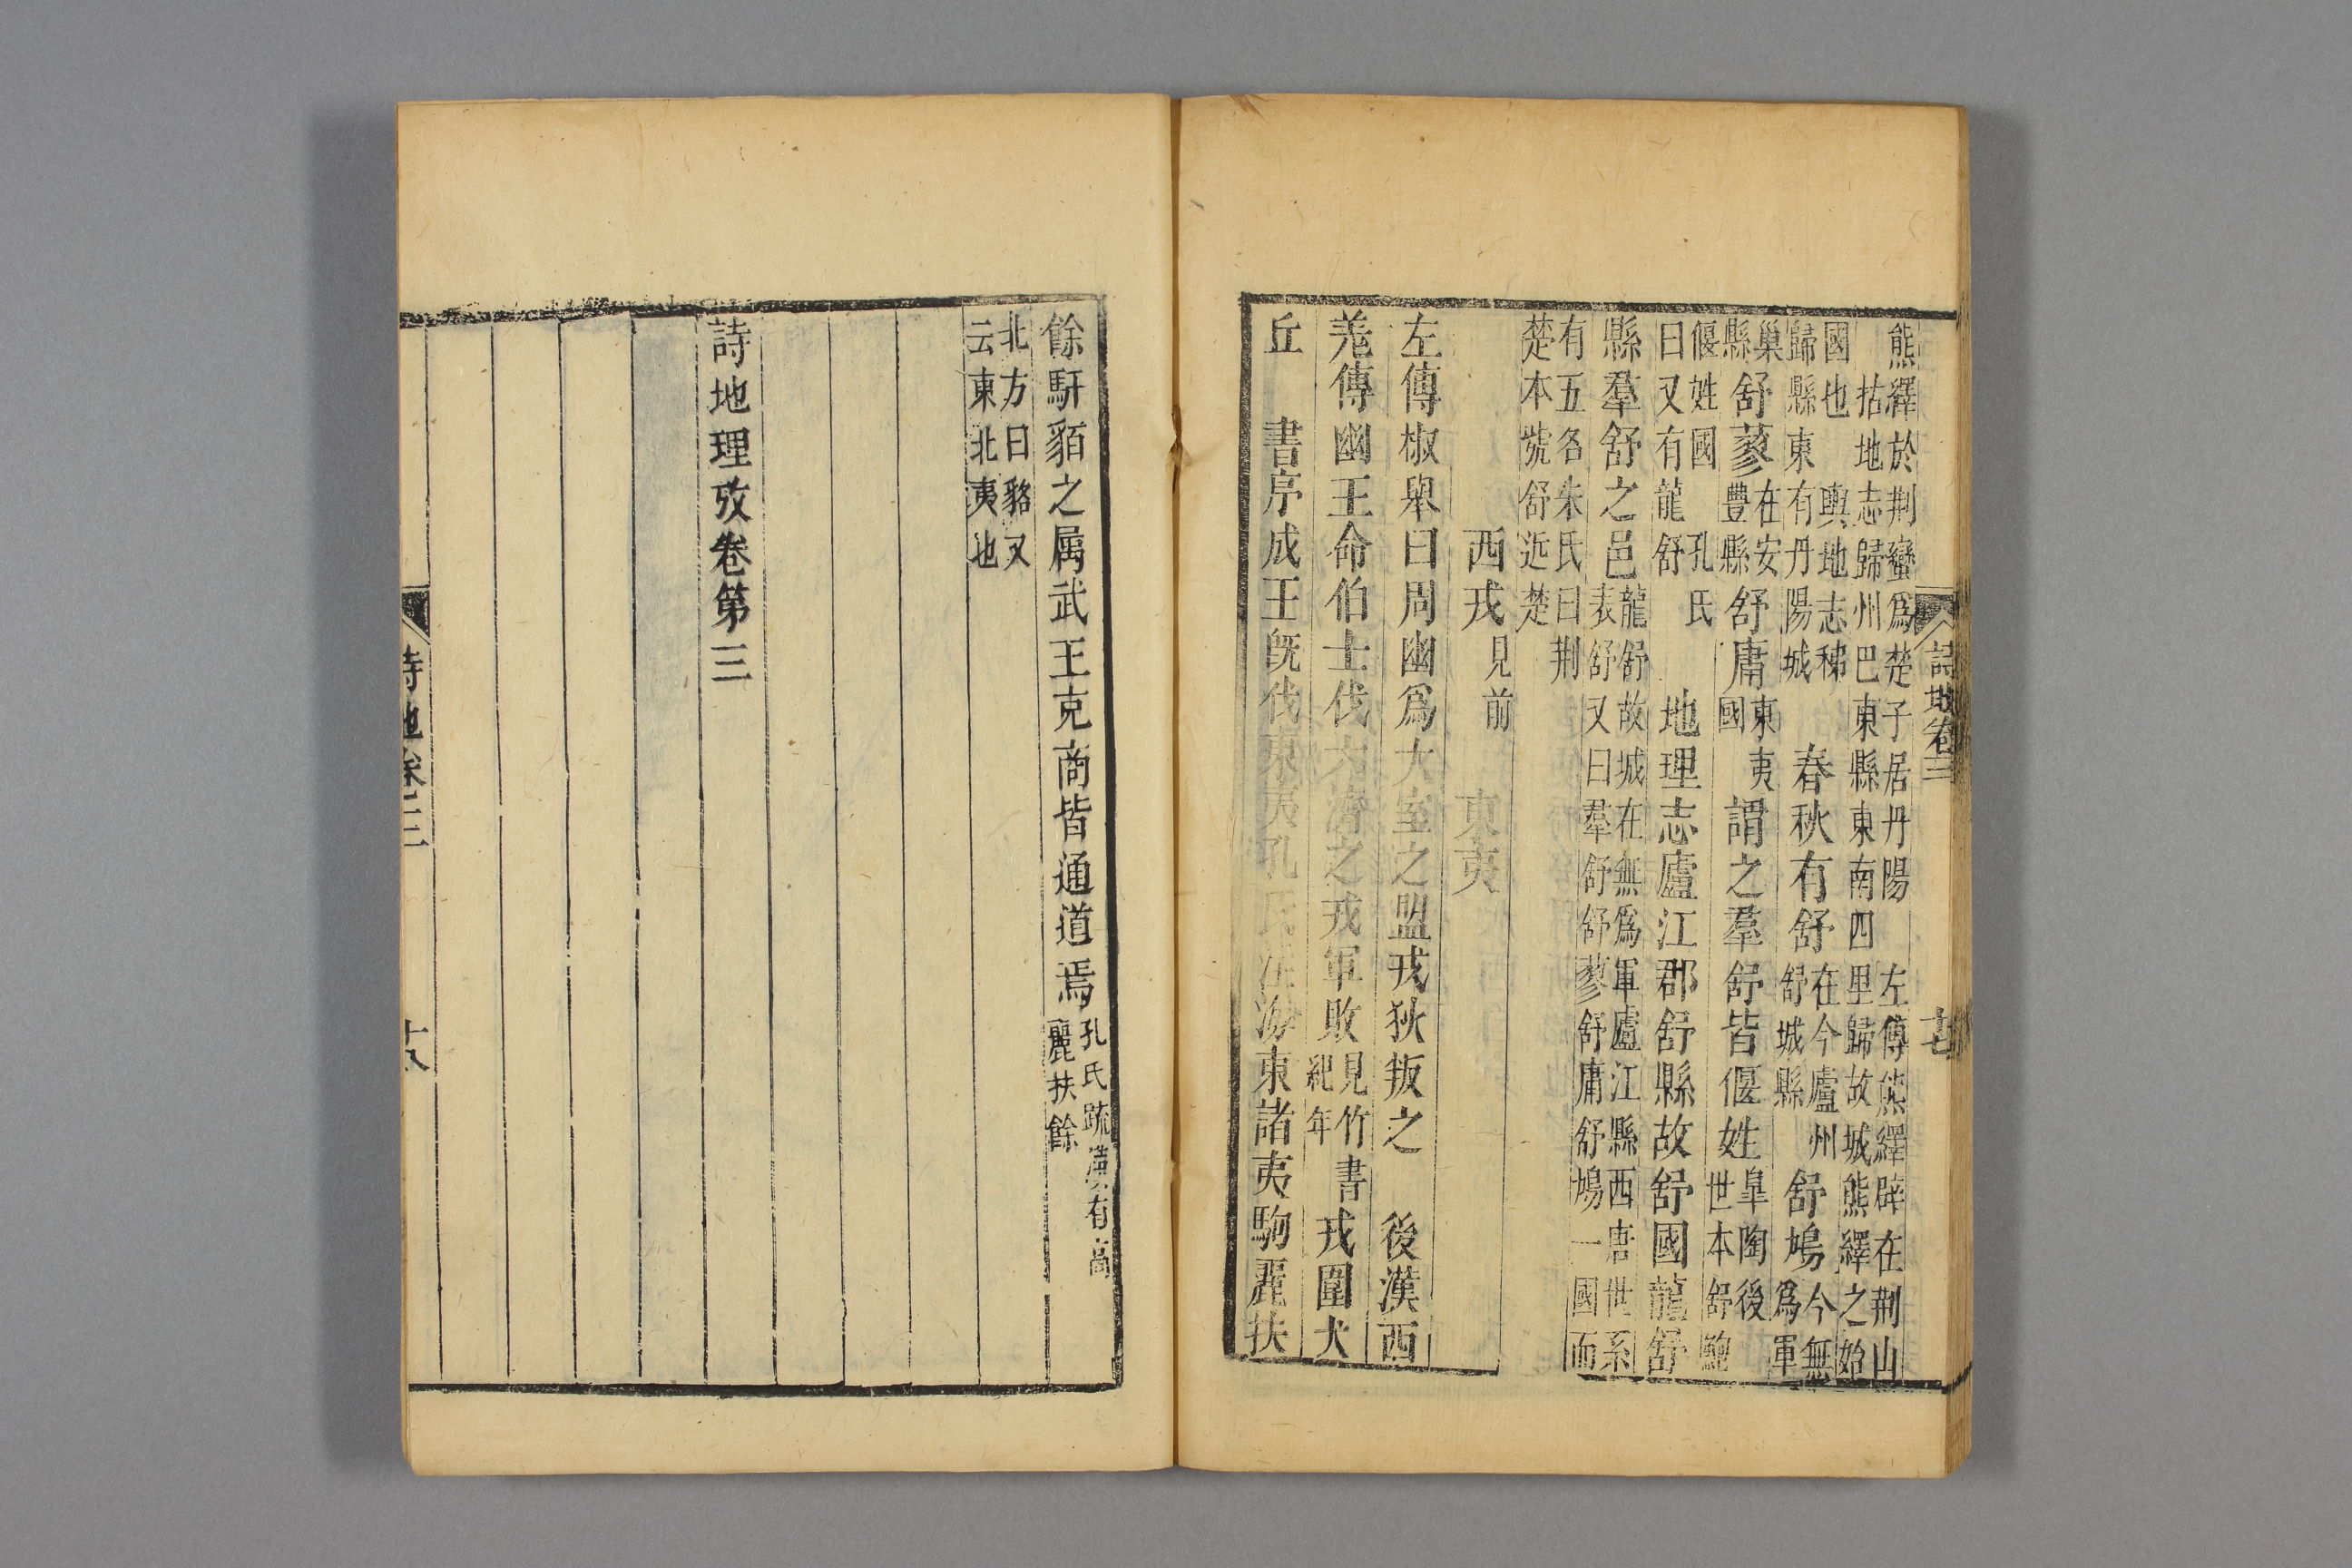 熊繹於荆蠻爲楚子居丹陽　左傳熊繹辟在荆山
括地志歸州巴東縣東南四里歸故城熊繹之始
國也　輿地志秭
歸縣東有丹陽城
春秋有舒
在今廬州
舒城縣
舒鳩
今無
爲軍
巢
縣
舒蓼
在安
豐縣
舒庸
東夷
國
謂之羣舒皆偃姓
皐陶後
世本舒
偃姓國　孔氏
曰又有龍舒
地理志廬江郡舒縣故舒國龍舒
縣羣舒之邑
龍舒故城在無爲軍廬江縣西唐世系
表舒又曰羣舒舒蓼舒庸舒鳩一國而
有五名朱氏曰荆
楚本號舒近楚
西戎
見
前
東夷
左傳椒舉曰周幽爲大室之盟戎狄叛之　後漢西
羌傳幽王命伯士伐六濟之戎軍敗
見竹書
紀年
戎圍犬
丘　書序成王旣伐東夷孔氏注海東諸夷駒麗扶
餘馯貊之屬武王克商皆通道焉
孔氏疏漢有高
麗扶餘
北方曰貉又
云東北夷也
詩地理攷卷第三
詩攷卷三
十七
詩地卷三
十八